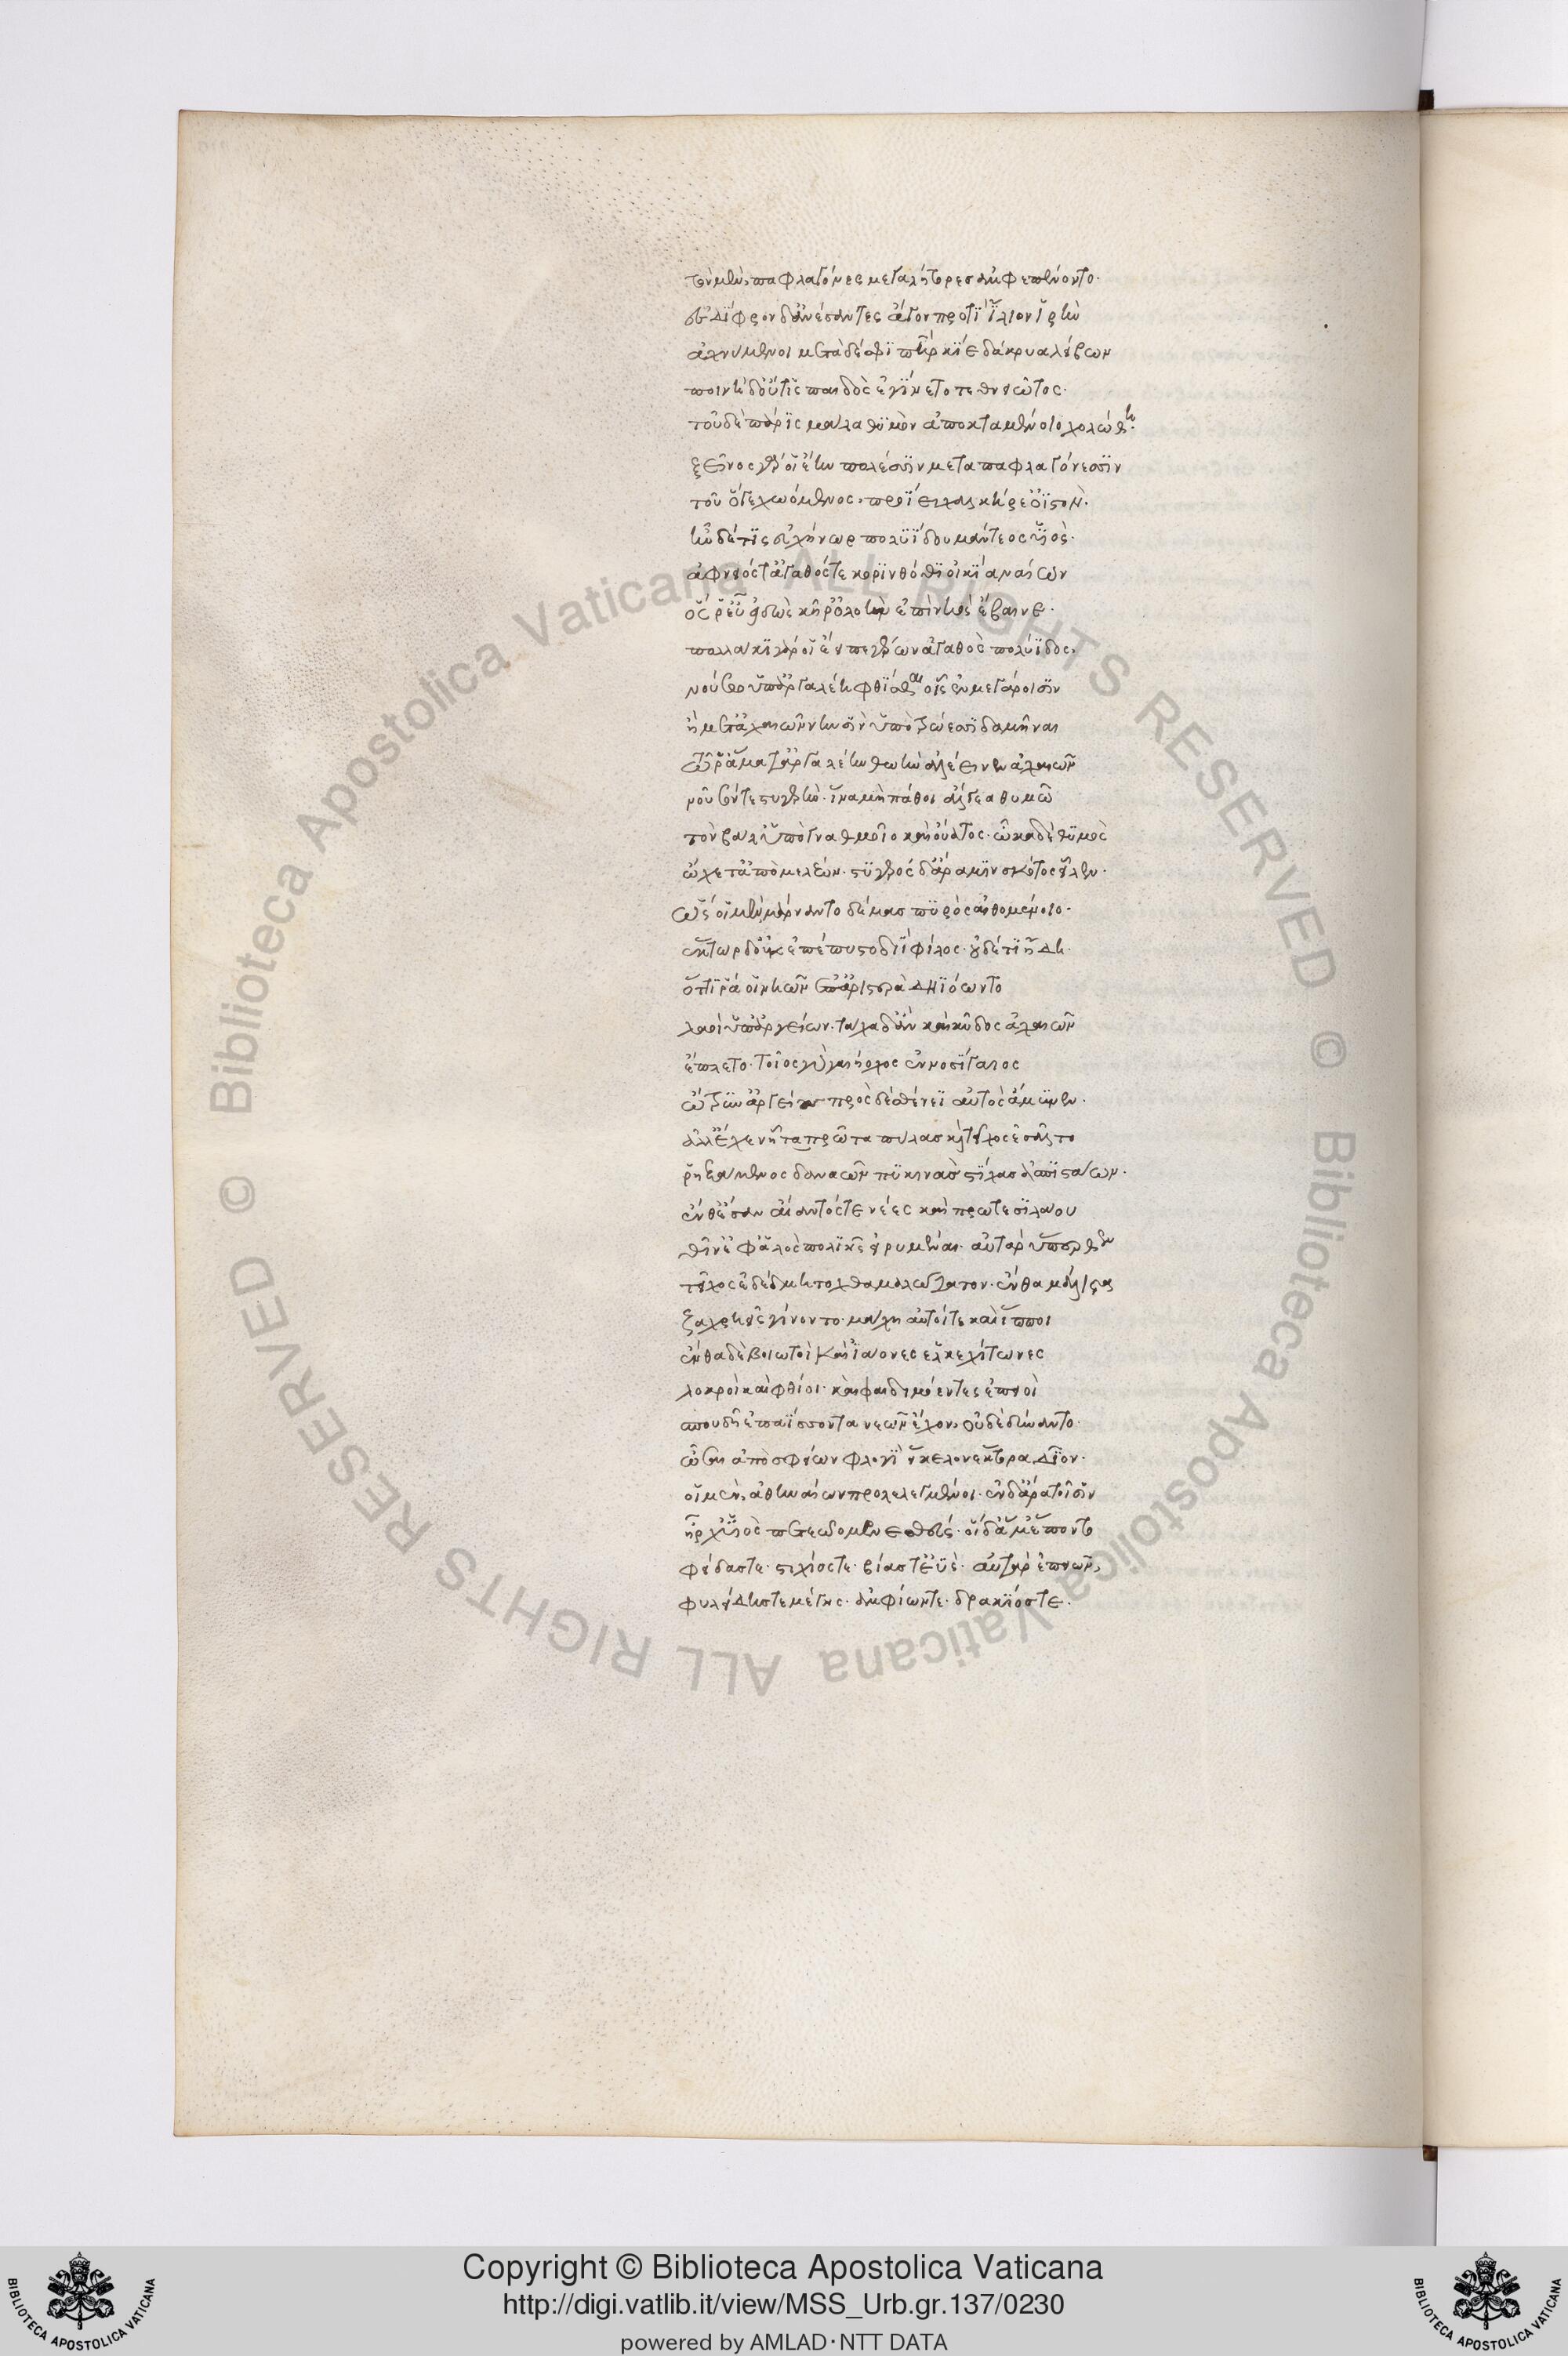 τὸν μὲν, παφλαγόνες μεγαλήτορες ἀμφεπένοντο·
ἐς δίφρον δ' ἀνέσαντες ἄγον προτὶ ἴλιον ἱρὴν
ἀχνύμενοι μετὰ δέ σφι πατὴρ κίε δάκρυα λείβων
ποινὴ δ' οὔτις παιδὸς ἐγίνετο τεθνειῶτος·
τοῦ δὲ πάρις μάλα θυμὸν ἀποκταμένοιο χολώθη·
ξεῖνος γάρ οἱ ἔην πολέσιν μετὰ παφλαγόνεσιν
τοῦ ὅγε χωόμενος, προΐει χαλκήρε' ὀϊστόν·
ἦν δέ τις εὐχήνωρ πολυΐδου μάντεος υἱὸς·
ἀφνειός τ' ἀγαθός τε κορινθόθι οἰκία ναίων
ὅς ῥ' εὖ εἰδὼς κῆρ' ὀλοὴν ἐπὶ νηὸς ἔβαινε·
πολλάκι γάρ οἱ ἔειπε γέρων ἀγαθὸς πολύϊδος,
νούσῳ ὑπ' ἀργαλέη φθίσθαι οἷς ἐν μεγάροισιν
ἢ μετ' ἀχαιῶν νηυσὶν ὑπὸ τρώεσσι δαμῆναι
τῷ ῥ' ἅμα τ' ἀργαλέην θωὴν ἀλέεινεν ἀχαιῶν
νοῦσόν τε στυγερὴν· ἵνα μὴ πάθοι ἄλγεα θυμῶ
τὸν βάλ' ὑπὸ γναθμοῖο καὶ οὔατος· ὦκα δὲ θυμὸς
ᾤχετ' ἀπὸ μελέων· στυγερὸς δ' ἄρα μιν σκότος εἷλεν·
ὣς οἱ μὲν μάρναντο δέμας πυρὸς αἰθομένοιο·
ἕκτωρ δ' οὐκ ἐπέπυστο διὶ φίλος· οὐδέ τι ἤδη·
ὅττι ῥά οἱ νηῶν ἐπ' ἀριστερὰ δηϊόωντο
λαοὶ ὑπ' ἀργείων· τάχα δ' ἂν καὶ κῦδος ἀχαιῶν
ἔπλετο· τοῖος γὰρ γαιήοχος ἐννοσίγαιος
ὤτρυν' ἀργείους· πρὸς δὲ σθένεϊ αὐτὸς ἄμυνεν·
ἀλλ' ἔχεν ἧ τὰ πρῶτα πύλας καὶ τεῖχος ἐσᾶλτο
ῥηξάμενος δαναῶν πυκινὰς στίχας ἀσπιστάων·
ἔνθ' ἔσαν αἴαντός τε νέες καὶ πρωτεσιλάου
θῖν' ἐφ' ἁλὸς πολιῆς εἰρυμέναι· αὐτὰρ ὕπερθεν
τεῖχος ἐδέδμητο χθαμαλώτατον· ἔνθα μάλιστα
ζαχρηεῖς γίνοντο· μάχη αὐτοί τε καὶ ἵπποι
ἔνθα δὲ βοιωτοὶ καὶ ἰάονες ἑλκεχίτωνες
λοκροὶ καὶ φθίοι· καὶ φαιδιμόεντες ἐπειοὶ
σπουδῆ ἐπαΐσσοντα νεῶν ἔχον, οὐδὲ δύναντο·
ὦσαι ἀπὸ σφείων φλογὶ εἴκελον ἕκτορα δῖον·
οἱ μὲν, ἀθηναίων προλελεγμένοι· ἐν δ' ἄρα τοῖσιν
ἦρχ' υἱὸς πετεῶο μενεσθεύς· οἱ δ' ἅμ' ἕποντο
φείδας τε· στιχίος τε· βίας τ' ἐῢς· αὐτὰρ ἐπειῶν,
φυλείδης τε μέγης· ἀμφίων τε· δρακίος τε·
Copyright © Biblioteca Apostolica Vaticana
http://digi.vatlib.it/view/MSS_Urb.gr.137/0230
powered by AMLAD·NTT DATA